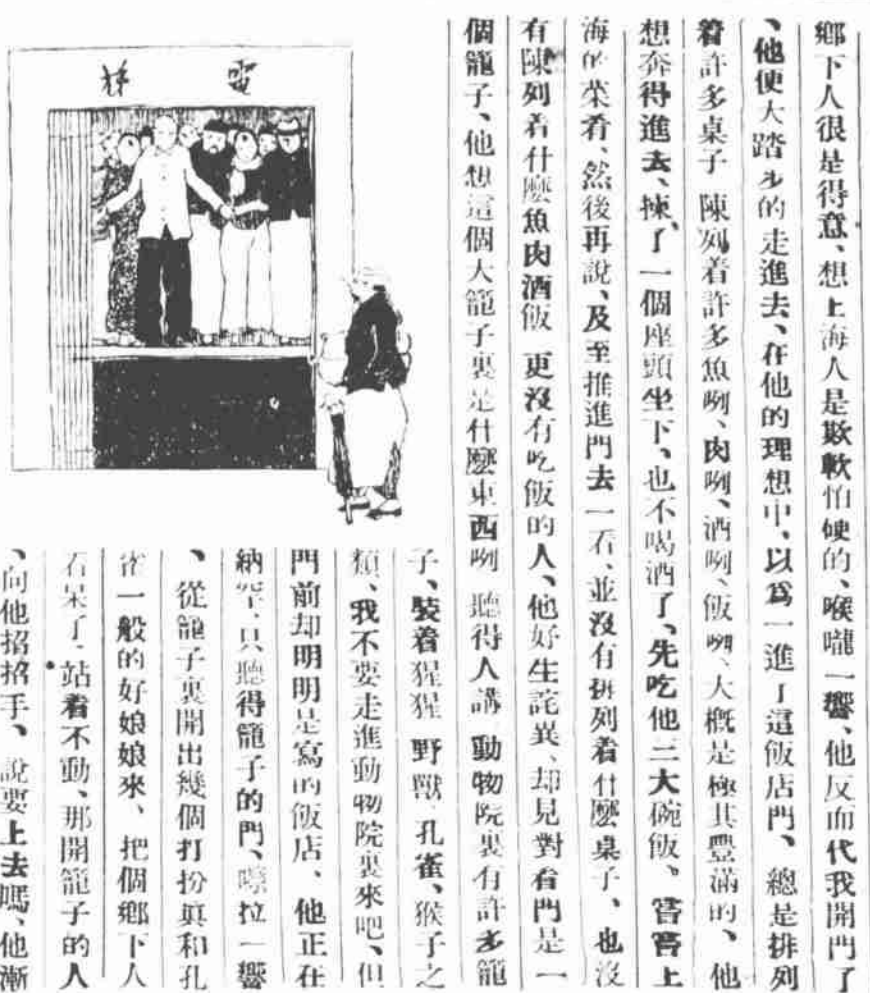 鄉下人很是得意、想上海人是欺軟怕硬的、喉嚨一響、他反而代我開門了
、他便大踏步的走進去、在他的理想中、以爲一進了這飯店門、總是排列
着許多桌子 陳列着許多魚咧、肉咧、酒咧、飯咧、大概是極其豐滿的、他
想奔得進去、揀了一個座頭坐下、也不喝酒了、先吃他三大碗飯、嘗嘗上
海的菜肴、然後再說、及至推進門去一看、並沒有排列着什麼桌子、也沒
有陳列着什麼魚肉酒飯 更沒有吃飯的人、他好生詫異、却見對着門是一
個籠子、他想這個大籠子裏是什麼東西咧 聽得人講、動物院裏有許多籠
子、裝着猩猩 野獸 孔雀、猴子之
類、我不要走進動物院裏來吧、但
門前却明明是寫的飯店、他正在
納罕、只聽得籠子的門、嘩拉一響
、從籠子裏開出幾個打扮眞和孔
雀一般的好娘娘來、把個鄉下人
看呆了、站着不動、那開籠子的人
、向他招招手、說要上去嗎、他漸
電梯